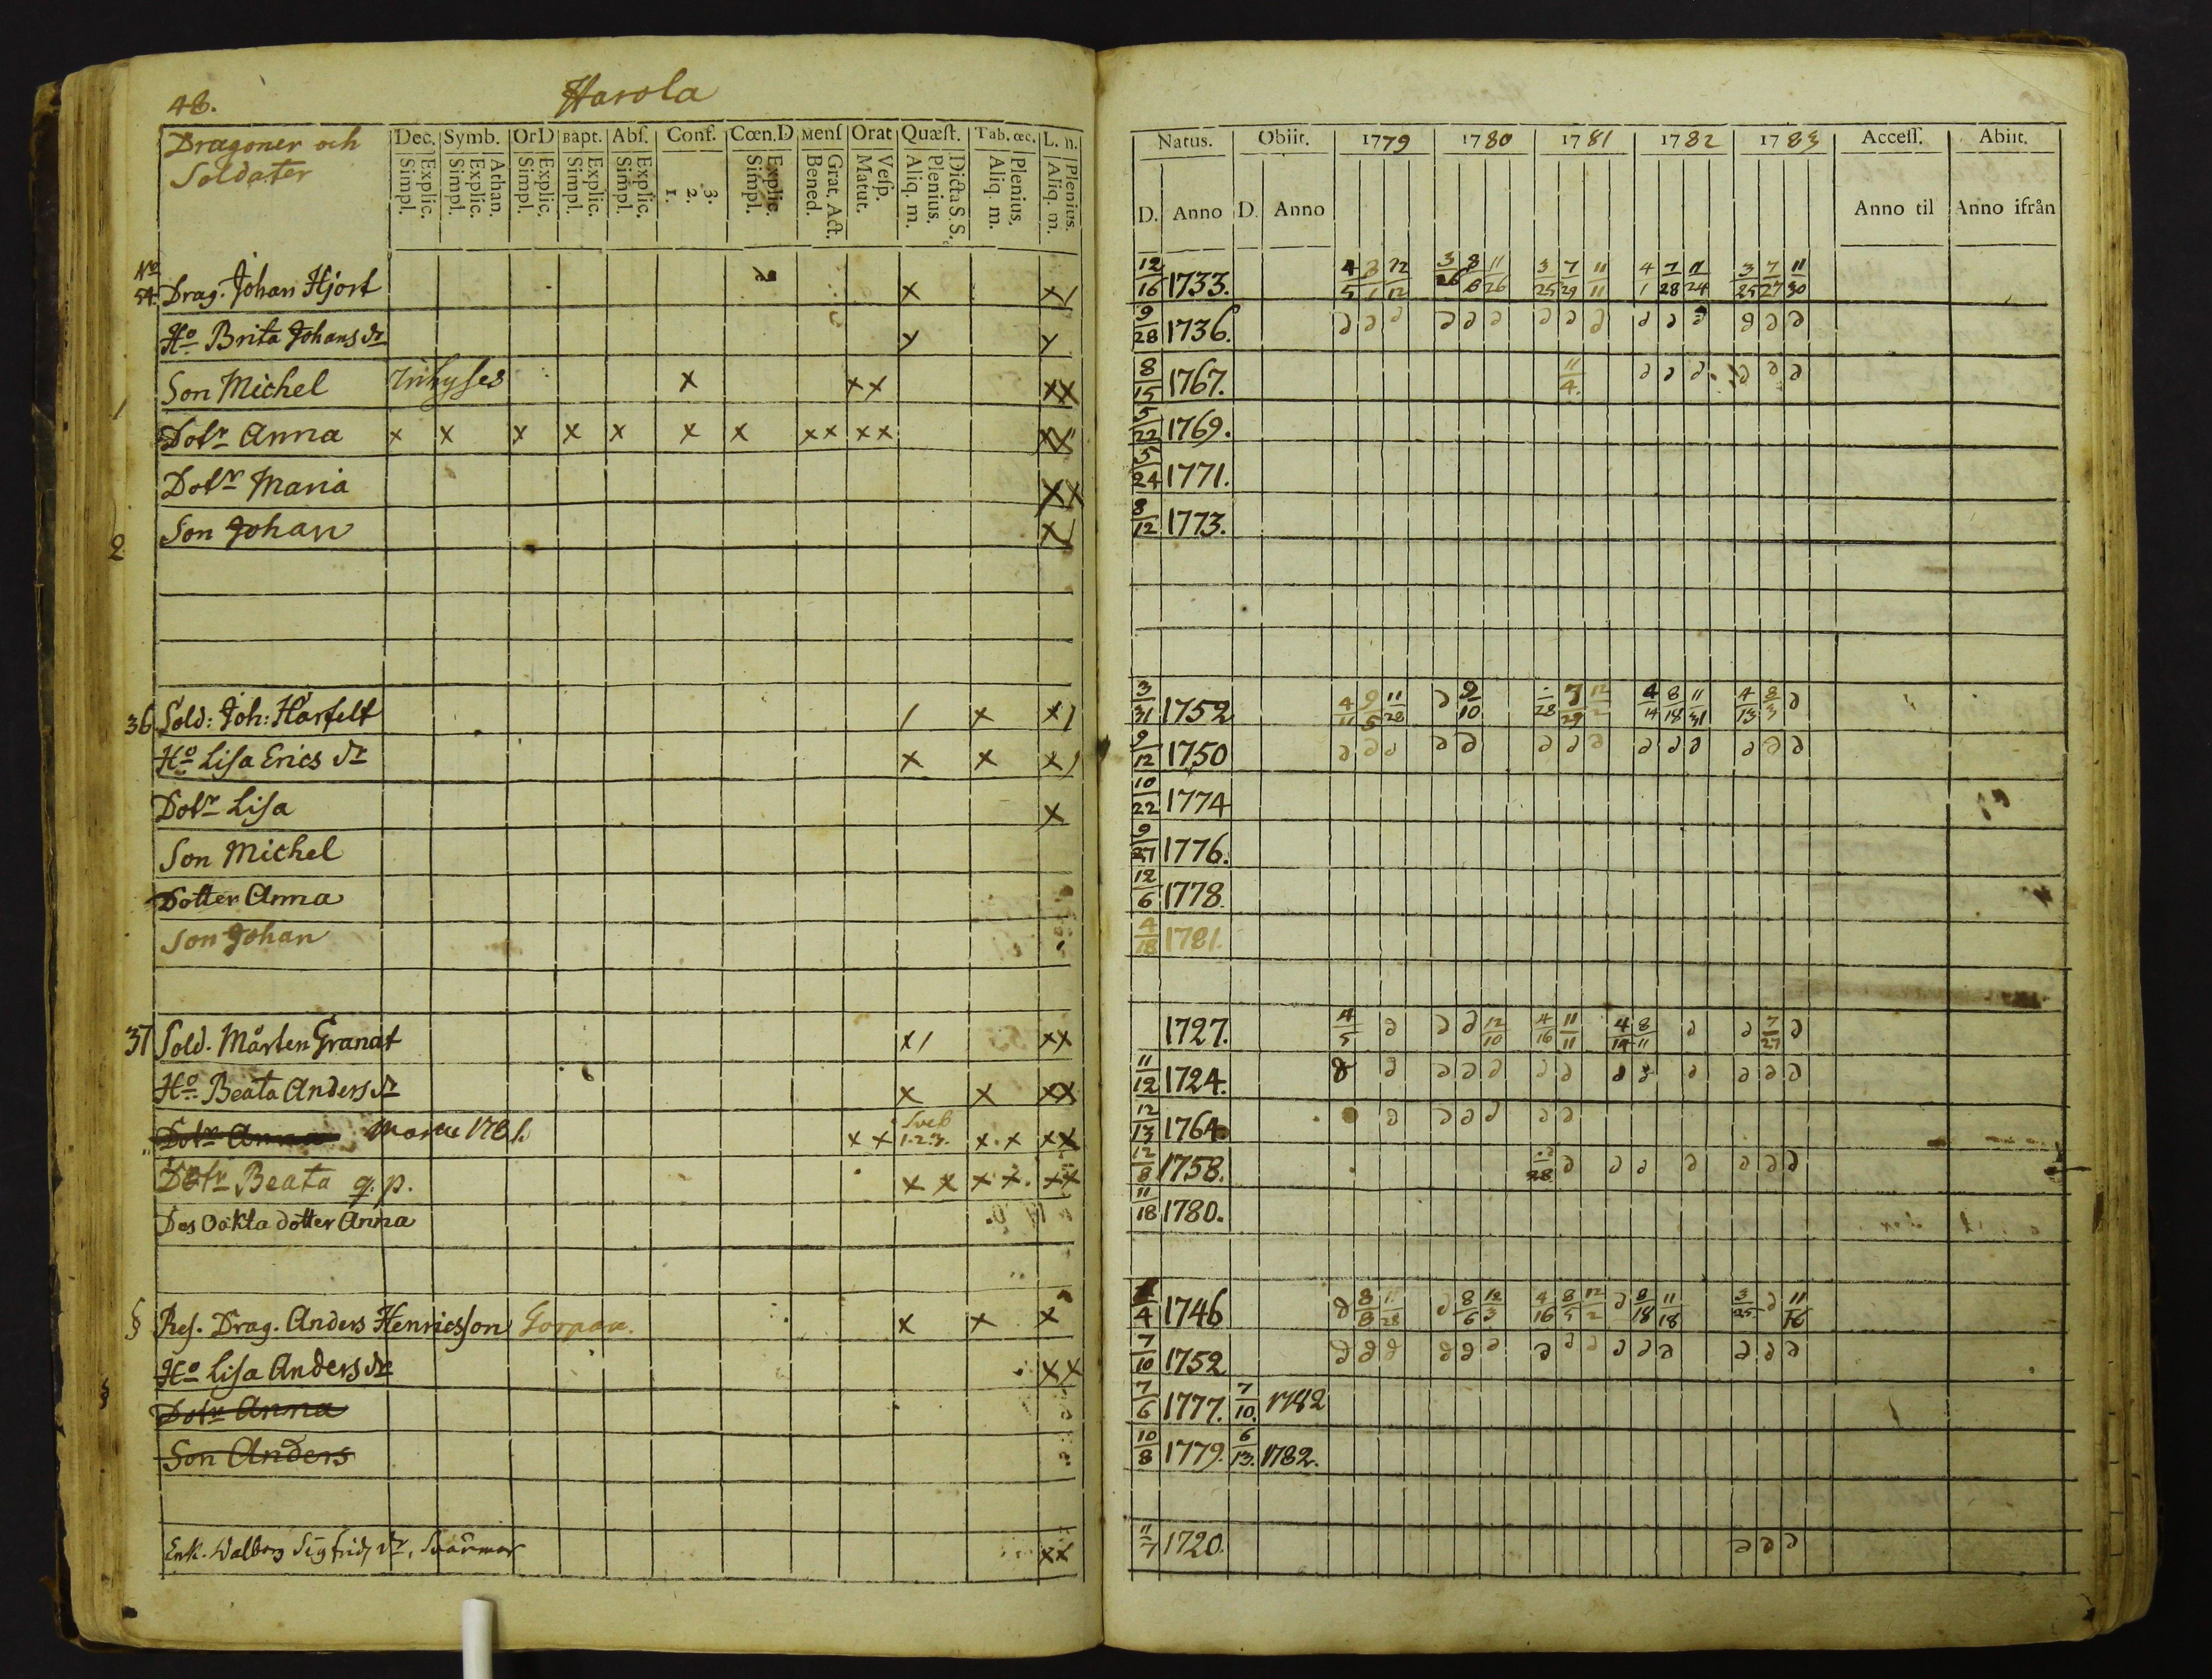 48.
Harola
Dragoner och
Soldater
Dec. Symb. OrD Bapt. Abſ. Conf. Cœn.D Menſ Orat Quæſt. Tab. œc. L. n.
Explic. Simpl. Athan. Explic. Simpl. Explic. Simpl. Explic. Simpl. Explic. Simpl. 3. 2. 1. Explic. Simpl. Grat. Act. Bened. Veſp. Matut. Dicta S. S. Plenius. Aliq. m. Plenius. Aliq. m. Plenius. Aliq. m.
No 54. Drag. Johan Hjort x x/
Ho Brita Johans dr
Son Michel x xx xx
1 Dotr Anna x x x x x x x xx xx xx
Dotr Maria xx
2 Son Johan
36 Sold: Joh: Harfelt / x x/
Ho Lisa Erics dr x x x/
Dotr Lisa x
Son Michel
Dotter Anna
Son Johan
37 Sold. Mårten Granat x/ xx
Ho Beata Anders dr x x xx
Dotr Anna xx 1.2.3. x.x xx
Dotr Beata q. p. xx x.x. xx
Des oäkta dotter Anna
§ Res. Drag. Anders Henricsson x x x
Ho Lisa Anders dr xx
Dotr Anna
Son Anders
Enk. Walborg Sigfrids dr, xx
Natus. Obiit. 1779 1780 1781 1782 1783 Acceſſ. Abiit.
D. Anno D. Anno Anno til Anno ifrån
12/16 1733. 3/25 7/29 11/11 4/1 7/28 11/24 3/25 7/27 11/30
9/28 1736.
8/15 1767. 11/4.
5/22 1769.
5/24 1771.
8/12 1773.
3/31 1752 4/11 9/5 11/28 9/10 7/29 12/2 4/14 8/18 11/31 4/13 8/3
9/12 1750
10/22 1774
9/27 1776.
12/6 1778.
4/18 1781.
1727. 4/5 12/10 4/16 11/11 4/14 8/11 7/27
11/12 1724.
12/13 1764.
12/8 1758.
11/18 1780.
1746 8/8 11/28 8/6 12/3 4/16 8/5 12/2 8/18 11/18 3/25 11/16
7/10 1752
7/6 1777. 7/10. 1782
10/8 1779. 6/13. 1782.
11/7 1720.